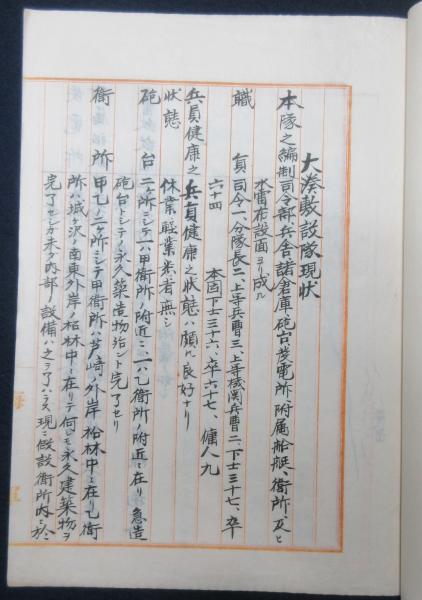 大湊敷設隊現状
本隊之編制司令部、兵舎、諸倉庫、砲台、発電所、附属船艇、衛所、及ヒ
水雷布設面ヨリ成ル
職員 司令一、分隊長二、上等兵曹三、上等機関兵曹二、下士三十七、卒
六十四 本固下士三十六、卒六十七、傭人九
兵員健康之 兵員健康之状態ハ頗ル良好ナリ
状態 休業軽業患者無シ
砲台 二ケ所ニシテ一ハ甲衛所ノ附近ニ一ハ乙衛所ノ附近ニ在リ急造
砲台トシテノ永久築造物殆ント完了セリ
衛所 甲乙ノ二ケ所ニシテ甲衛所ハ芦崎ノ外岸松林中ニ在リ乙衛
所ハ城ケ沢ノ南東外岸ノ松林中ニ在リテ何レモ永久建築物ヲ
完了セシカ未タ内部ノ設備ハ之ヲ了ハラス現ニ仮設衛所内ニ於